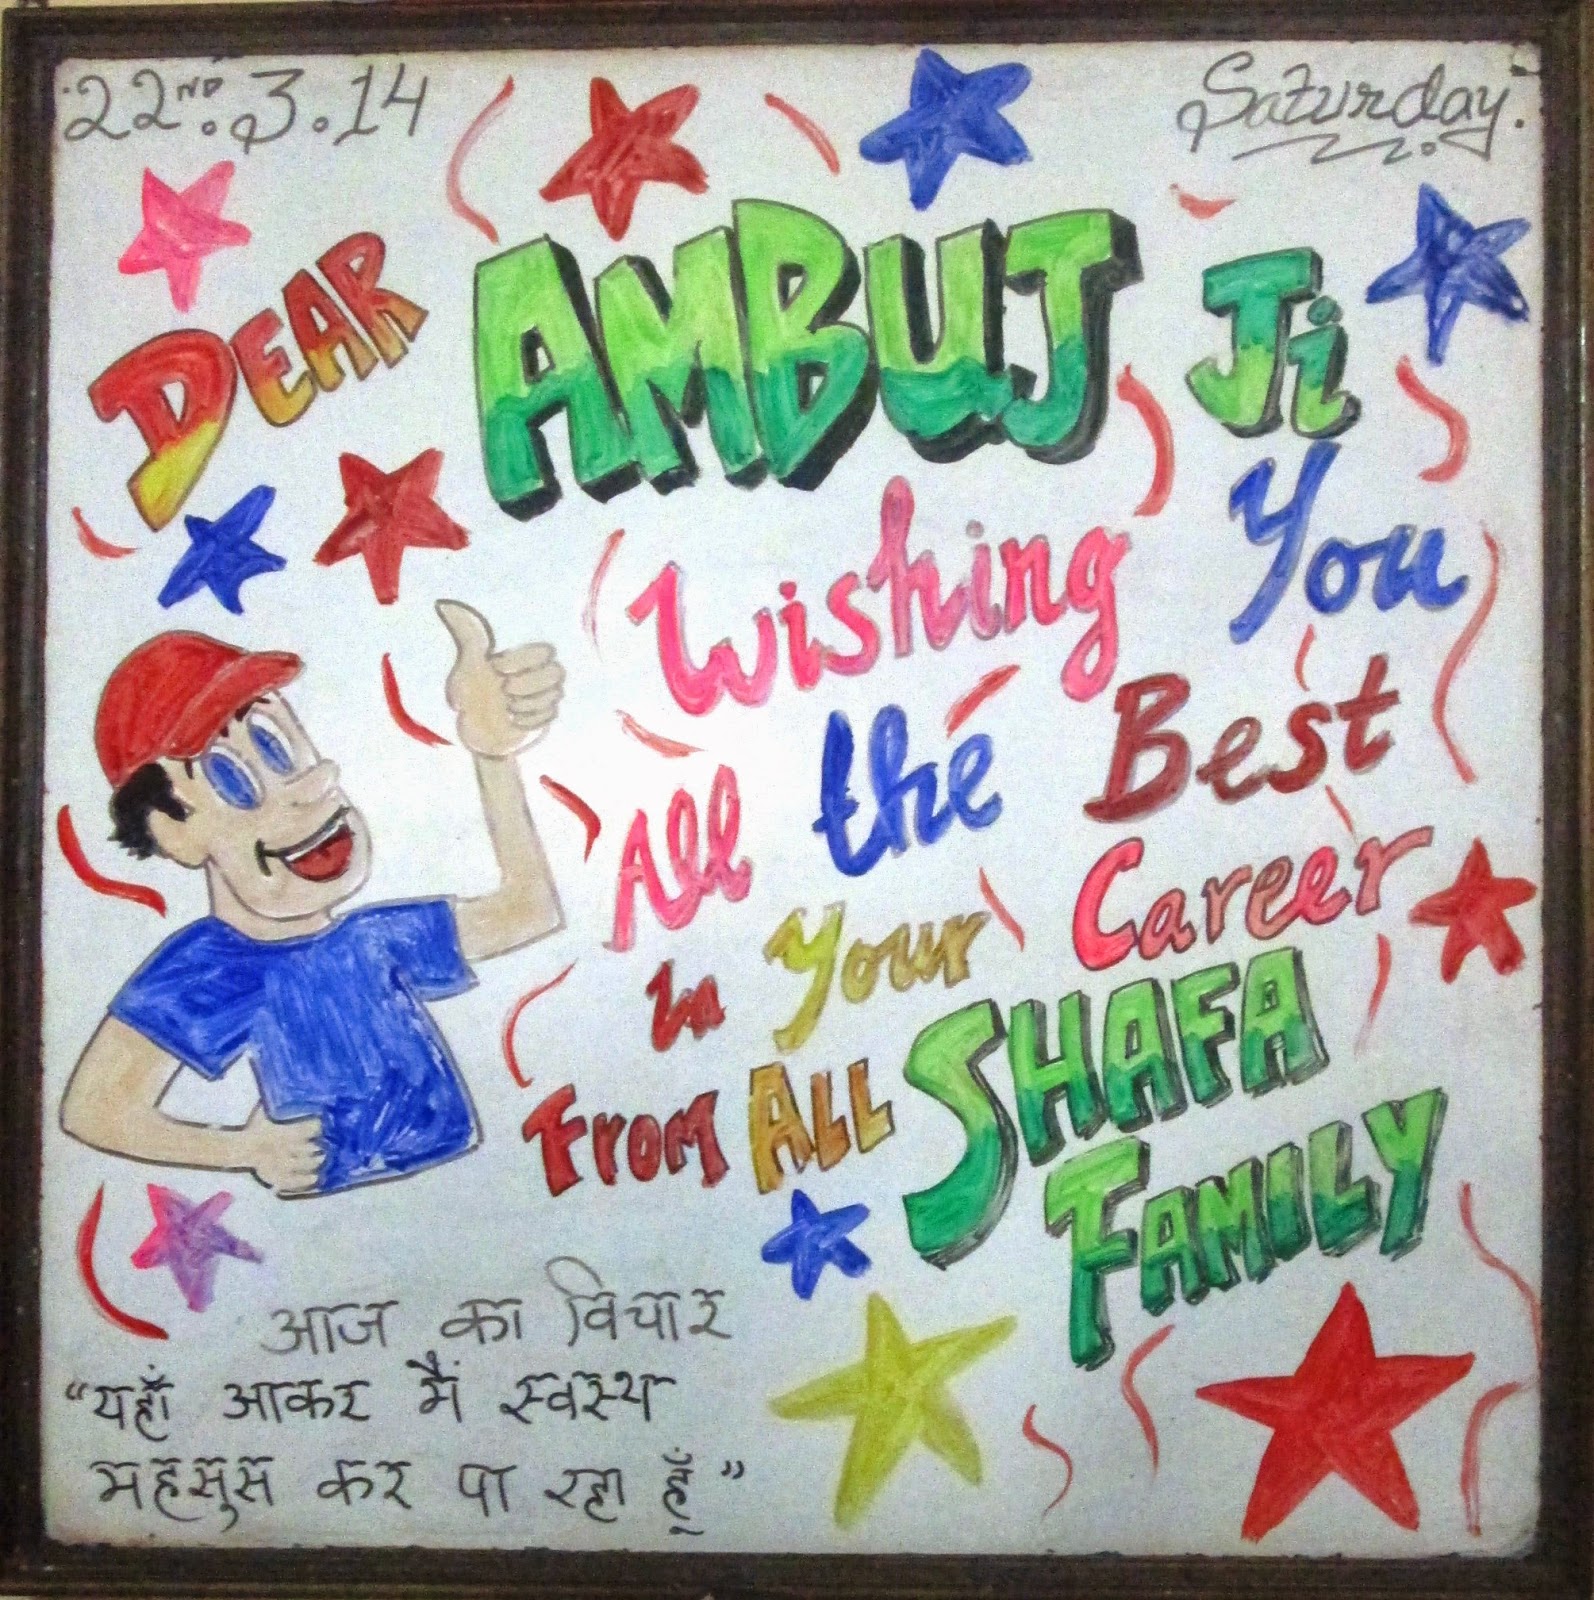 22ND.3.14
Saturday.
DEAR AMBUJ Ji
Wishing You
All the Best
In Your Career
From ALL SHAFA
FAMILY
आज का विचार
“यहाँ आकर मैं स्वस्थ
महसुस कर पा रहा हूँ”